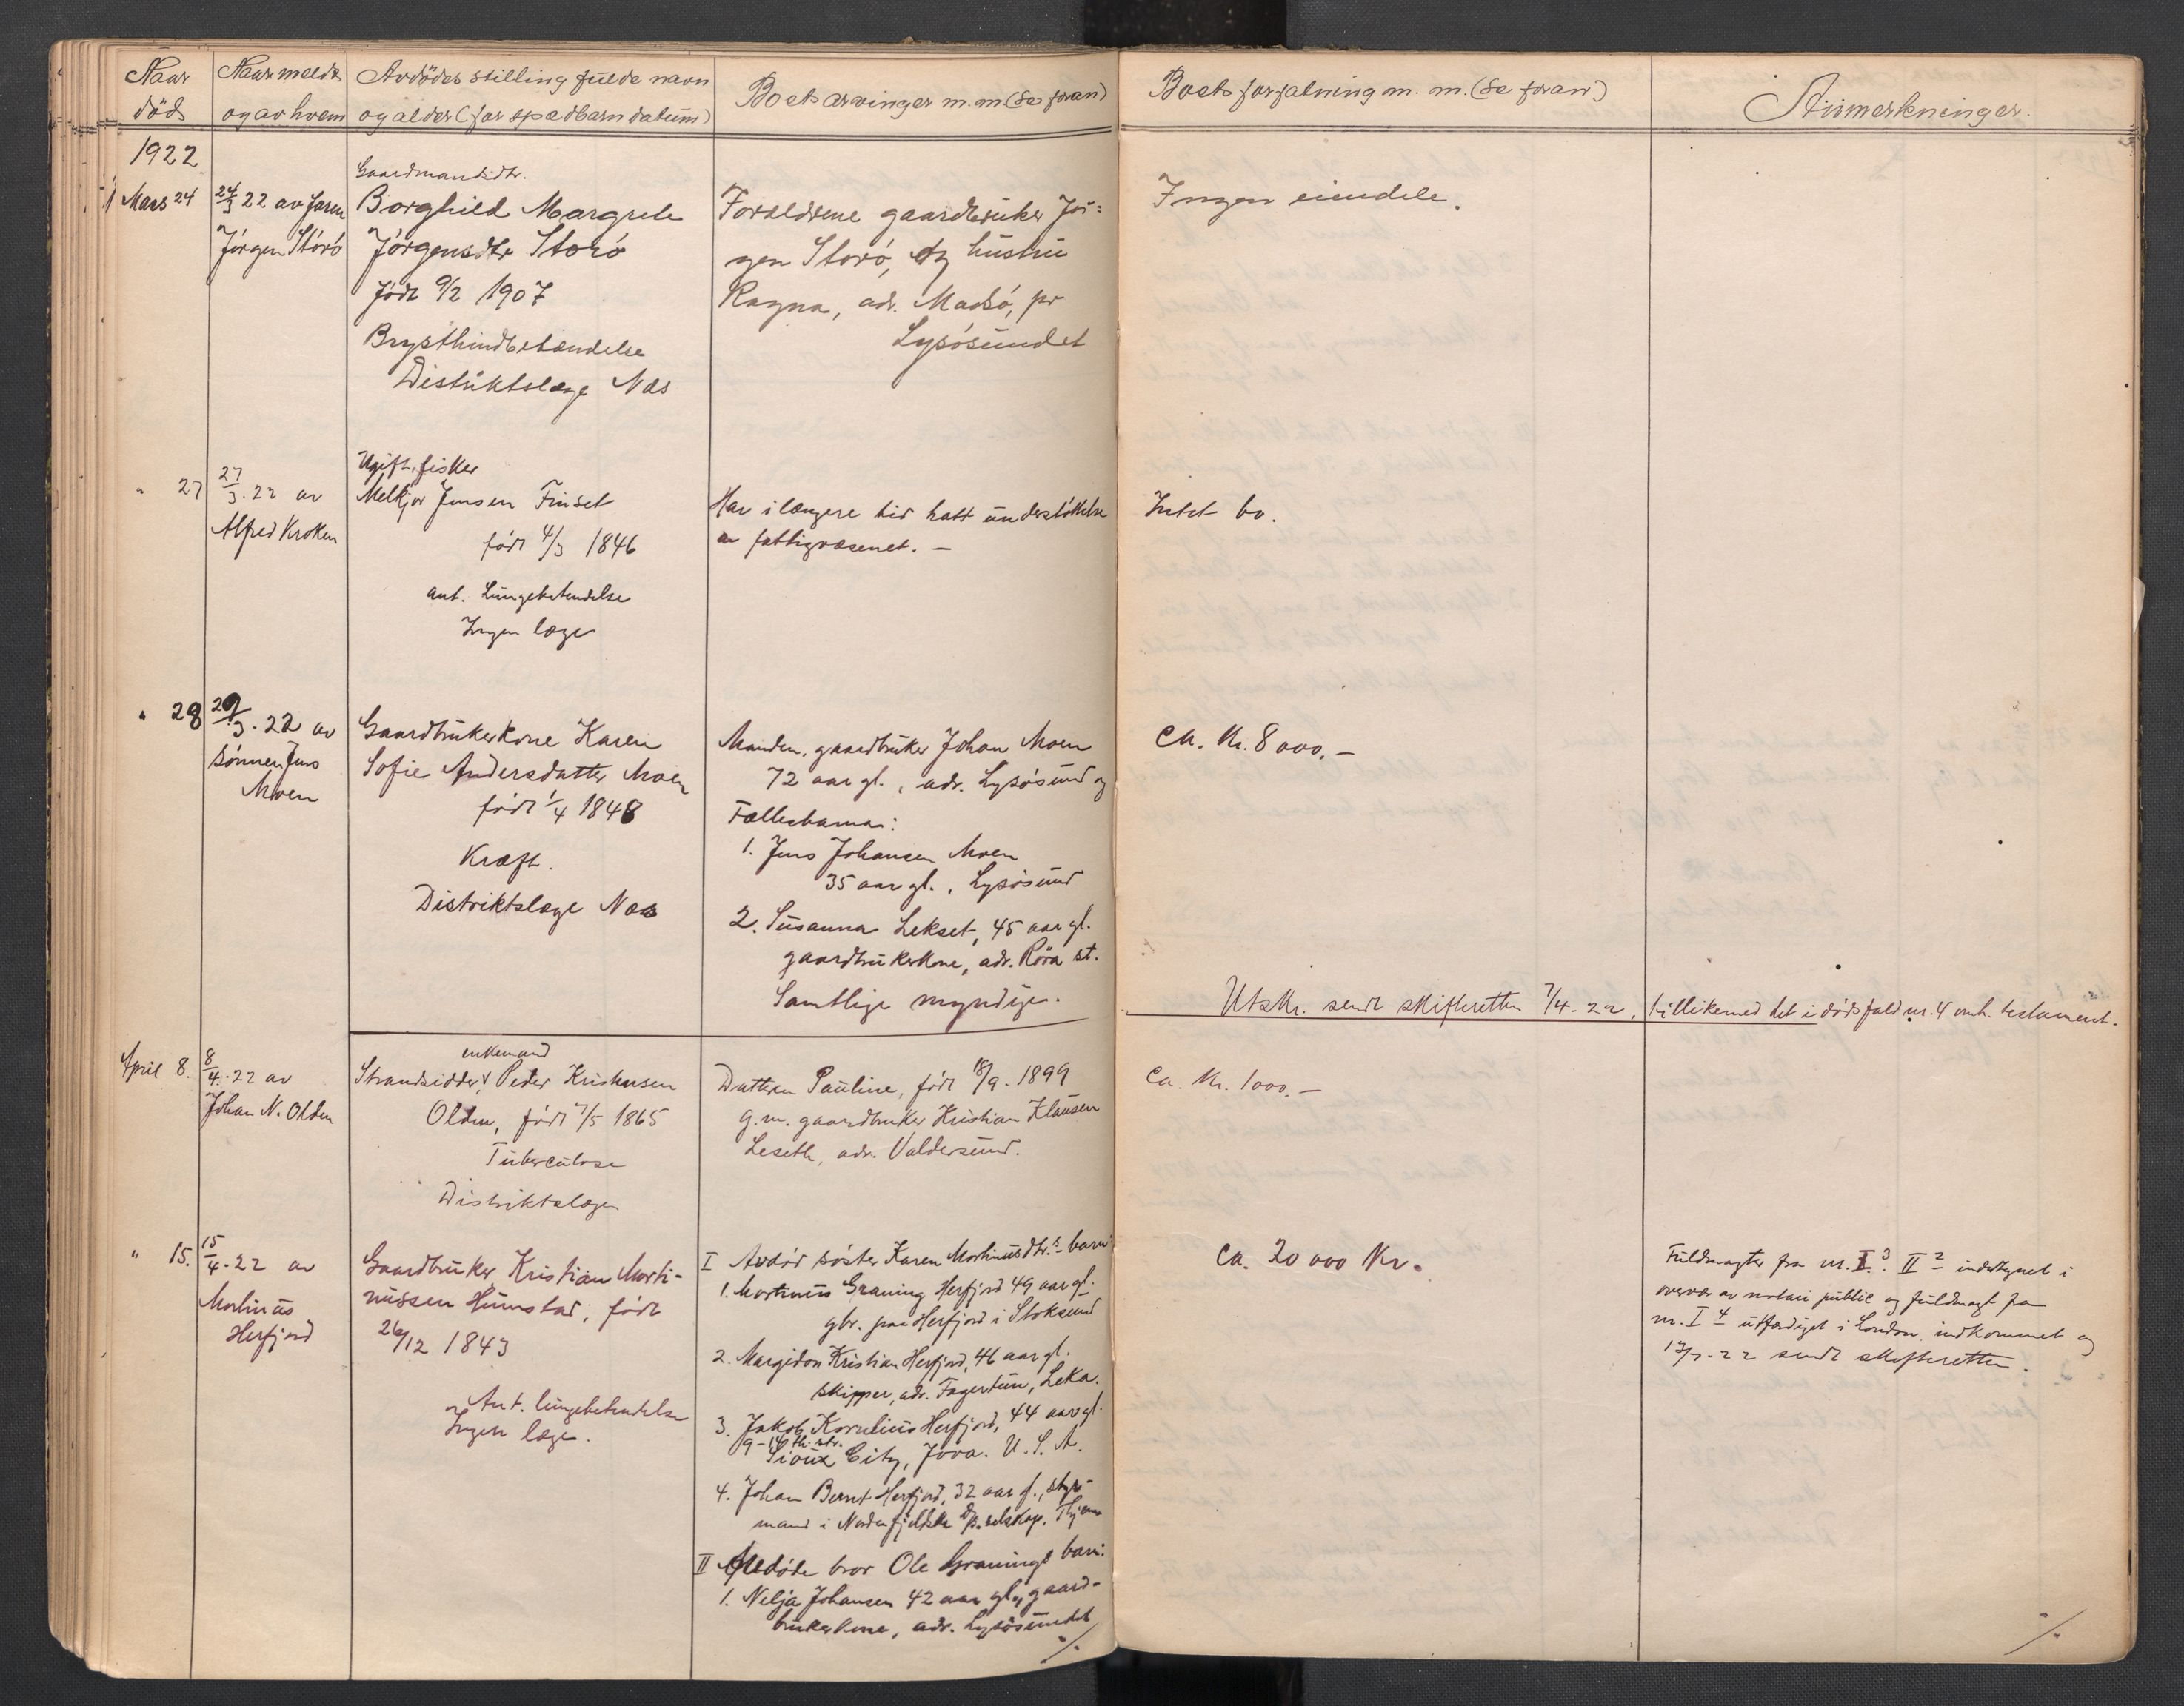 Naar
död
Naar meldt
og av hvem
Avdödes stilling fulde navn
og alder (for spædbarn datum)
Boets arvinger m.m (Se foran)
Boets forfatning m. m. (Se foran)
Anmerkninger.
1922
Mars 24
24/3 22 av faren
Jörgen Storö
Gaardmandsdtr.
Borghild Margrete
Jörgensdtr Storö
født 9/2 1907
Brysthindbetændelse
Distriktslæge Næs
Forældrene gaardbruker Jör=
gen Storö, og hustru
Ragna, adr. Madsö, pr
Lysösundet
Ingen eiendele.
" 27
27/3. 22 av
Alfred Kroken
Ugift fisker
Melkjor Jensen Finset
født 4/3 1846
ant. Lungebetendelse
Ingen læge
Har i længere tid hatt understöttelse
av fattigvæsenet. —
Intet bo.
" 28
29/3. 22 av
sönnen Jens
Moen
Gaardbrukerkone Karen
Sofie Andersdatter Moen
født 1/4 1848
Kræft.
Distriktslæge Næs
Manden, gaardbruker Johan Moen
72 aar gl., adr. Lysösund og
Fællesbarna:
1. Jens Johansen Moen
35 aar gl., Lysösund
2. Susanna Lekset, 45 aar gl.
gaardbrukerkone, adr. Röra st.
Samtlige myndige.
Ca. Kr. 8000.—
Utskr. sendt skifteretten 7/4-22, tillikemed det i dödsfald nr. 4 omh. testament.
April 8.
8/4. 22 av
Johan N. Olden
enkemand
Strandsidder Peder Kristensen
Olden, født 7/5 1865
Tuberculose
Distriktslægen
Datteren Pauline, født 18/9. 1899
g.m. gaardbruker Kristian Klausen
Leseth, adr. Valdersund.
Ca. Kr. 1000.—
" 15.
15/4. 22 av
Martinus
Herfjord
Gaardbruker Kristian Marti-
nussen Humstad, født
26/12 1843
Ant. lungebetendelse
Ingen læge.
I Avdöd söster Karen Martinusdtr.s barn:
1. Martinus Graning Herfjord 49 aar gl.
gbr. paa Herfjord i Stoksund
2. Margidon Kristian Herfjord, 46 aar gl.
skipper, adr. Fagertun, Leka.
3. Jakob Kornelius Herfjord, 44 aar gl.
9-16 th. str.
Sioux City, Jova. U. S. A.
4. Johan Bernt Herfjord, 32 aar gl., styr-
mand i Nordenfjeldske D/p. selskap, Thjem
II Avdöde bror Ole Granings barn:
1. Nilja Johansen 42 aar gl., gaard-
brukerkone, adr. Lysösundet
./.
Ca. 20 000 Kr.
Fuldmagter fra nr. I 3. II 2 undertegnet i
overvær av notari public og fuldmagt fra
nr. I 4 utfærdiget i London indkommet og
13/7-22 sendt skifteretten.
./.